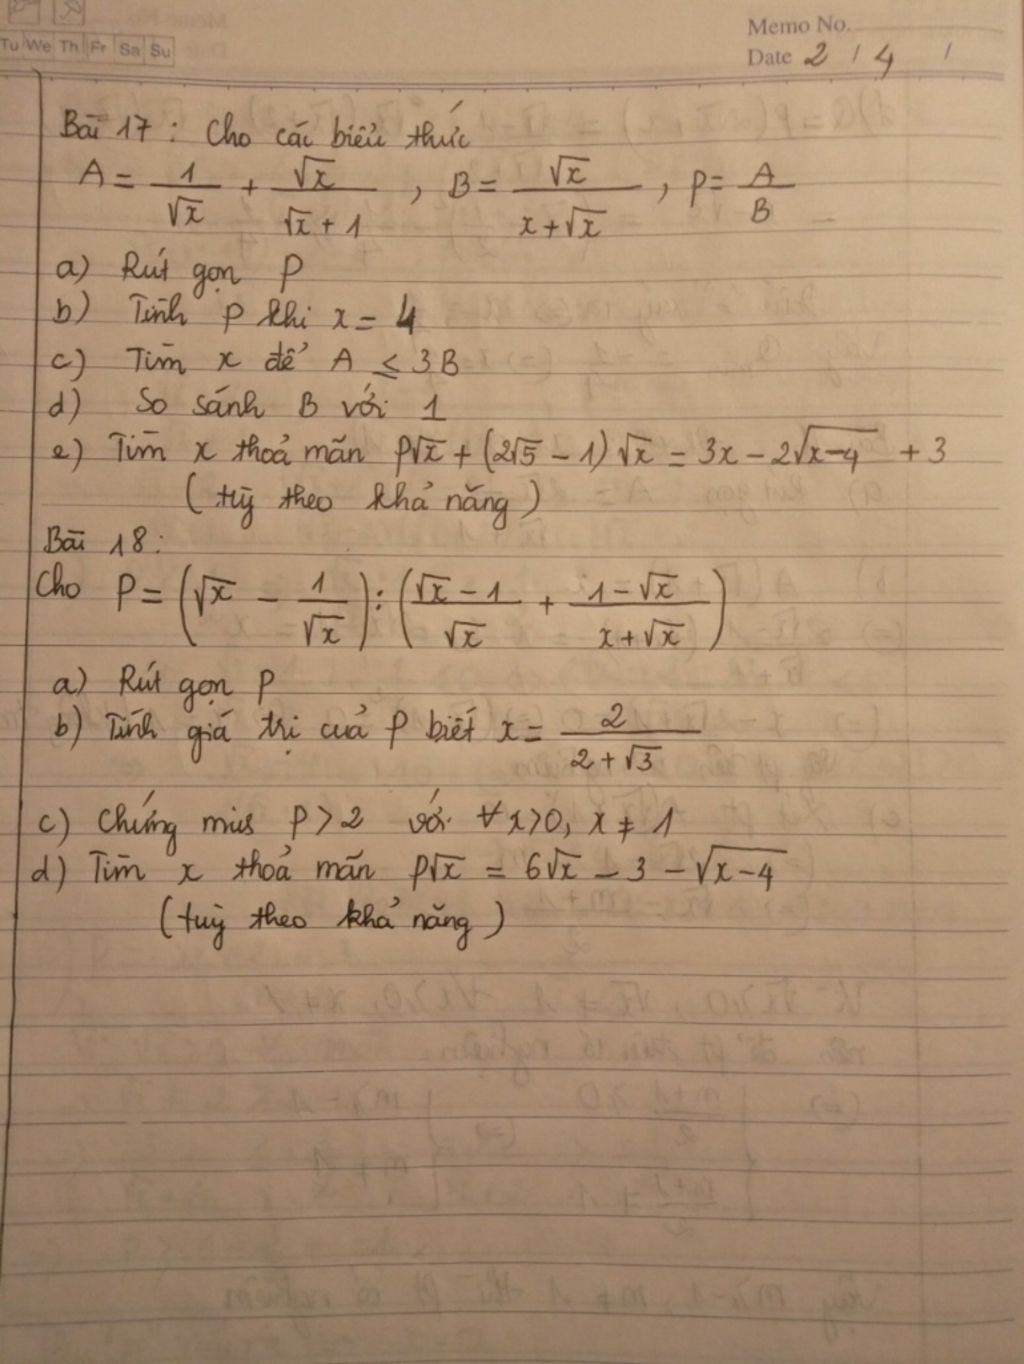 Tu We Th Fr Sa Su
Memo No.
Date 2 / 4 /
Bài 17 : Cho các biểu thức
A = 1/√x + √x/(√x + 1) , B = √x/(x + √x) , P = A/B
a) Rút gọn P
b) Tính P khi x = 4
c) Tìm x để A ≤ 3B
d) So sánh B với 1
e) Tìm x thoả mãn P√x + (2√5 - 1)√x = 3x - 2√(x-4) + 3
(tuỳ theo khả năng)
Bài 18:
Cho P = (√x - 1/√x) : ((√x - 1)/√x + (1 - √x)/(x + √x))
a) Rút gọn P
b) Tính giá trị của P biết x = 2/(2 + √3)
c) Chứng minh P > 2 với ∀x>0, x ≠ 1
d) Tìm x thoả mãn P√x = 6√x - 3 - √(x-4)
(tuỳ theo khả năng)